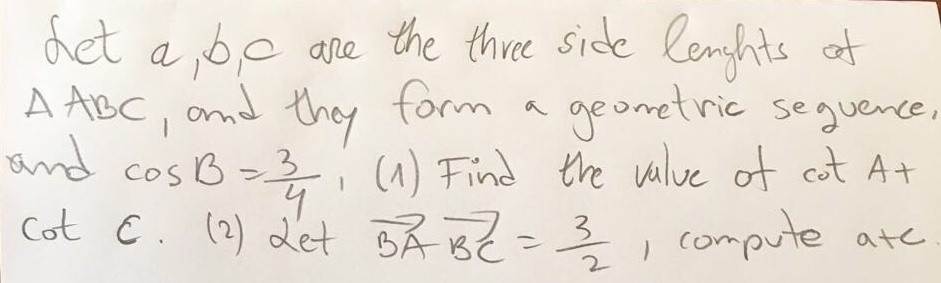 Let a,b,c are the three side lenghts of
Δ ABC, and they form a geometric sequence,
and cos B = 3/4, (1) Find the value of cot A+
cot C. (2) Let \overrightarrow{BA} \overrightarrow{BC} = 3/2, compute a+c.